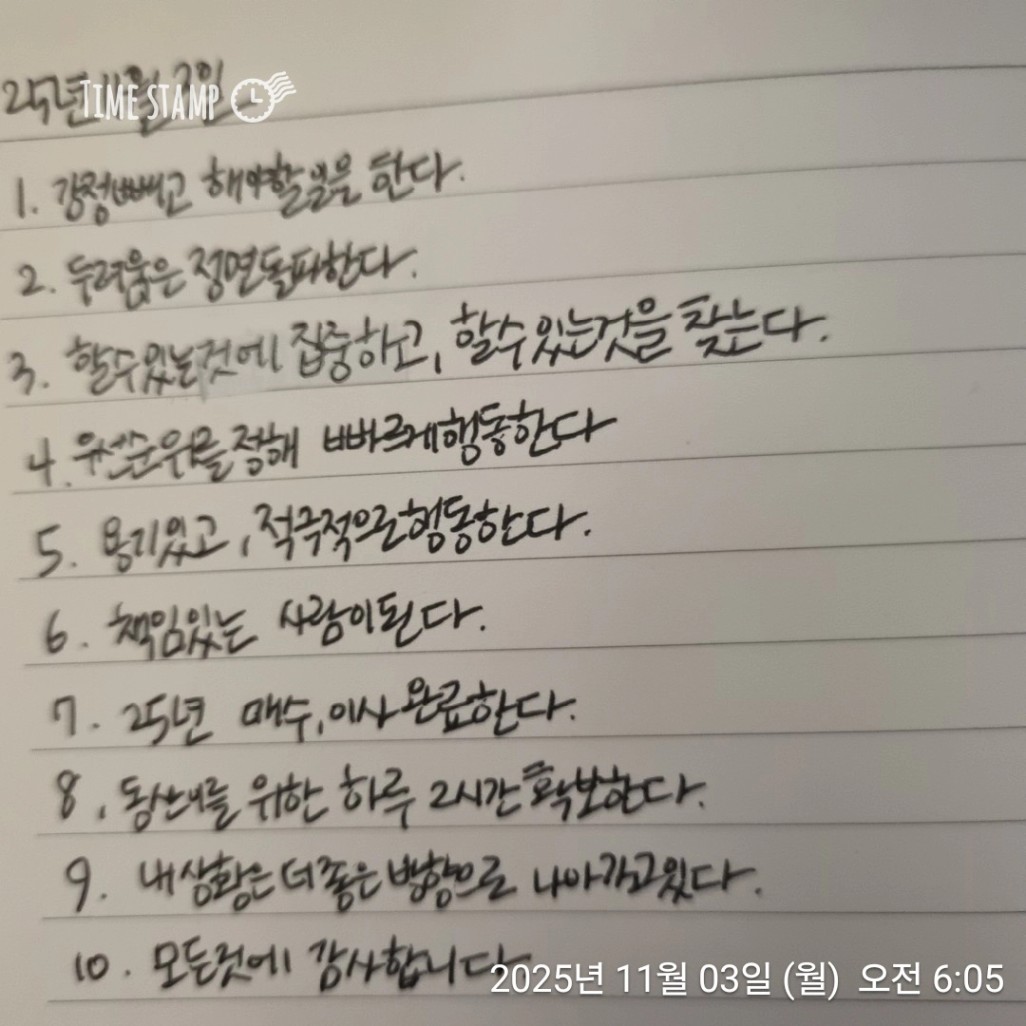 25년 11월 3일
TIME STAMP
1. 감정빼고 해야할일을 한다.
2. 두려움은 정면돌파한다.
3. 할수있는것에 집중하고, 할수있는것을 찾는다.
4. 우선순위를 정해 빠르게행동한다
5. 용기있고, 적극적으로행동한다.
6. 책임있는 사람이된다.
7. 25년 매수, 이사완료한다.
8. 위한 하루 2시간 확보한다.
9. 내상황은 더좋은 방향으로 나아가고있다.
10. 모든것에 감사합니다
2025년 11월 03일 (월) 오전 6:05